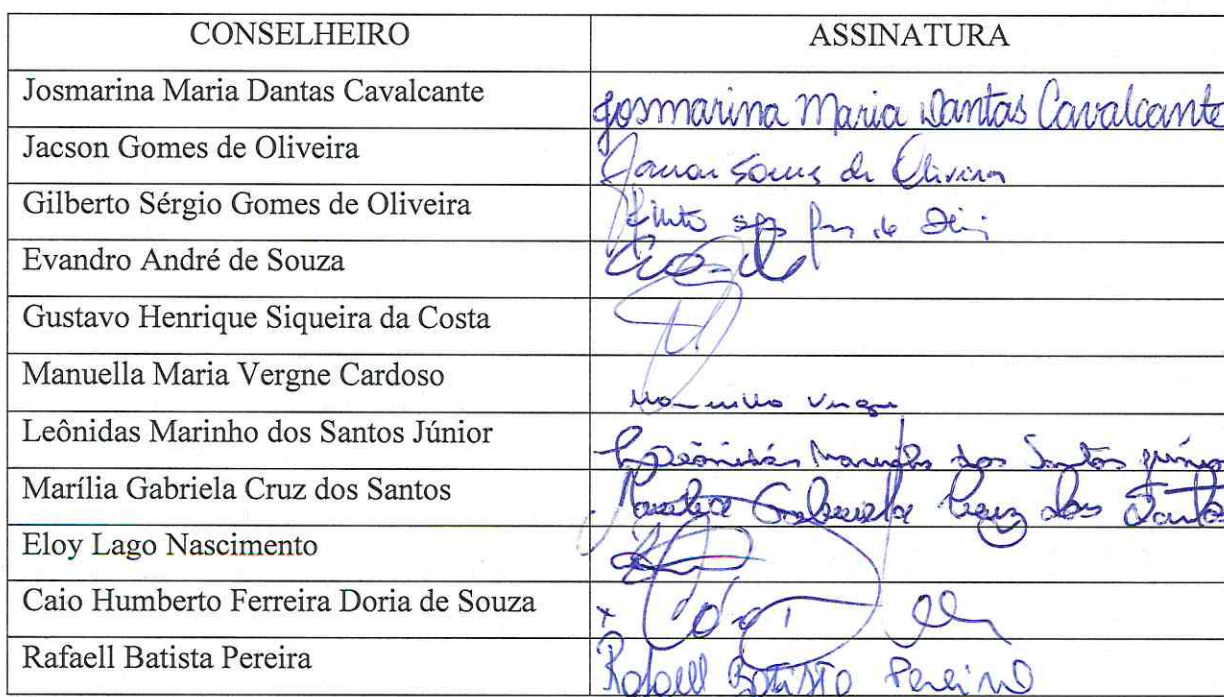 CONSELHEIRO ASSINATURA
Josmarina Maria Dantas Cavalcante Josmarina Maria Dantas Cavalcante
Jacson Gomes de Oliveira Gomes de Oliveira
Gilberto Sérgio Gomes de Oliveira
Evandro André de Souza
Gustavo Henrique Siqueira da Costa
Manuella Maria Vergne Cardoso Manuella Vergne
Leônidas Marinho dos Santos Júnior Leônidas Marinho dos Santos Júnior
Marília Gabriela Cruz dos Santos Marília Gabriela Cruz dos Santos
Eloy Lago Nascimento
Caio Humberto Ferreira Doria de Souza x
Rafaell Batista Pereira Rafaell Batista Pereira